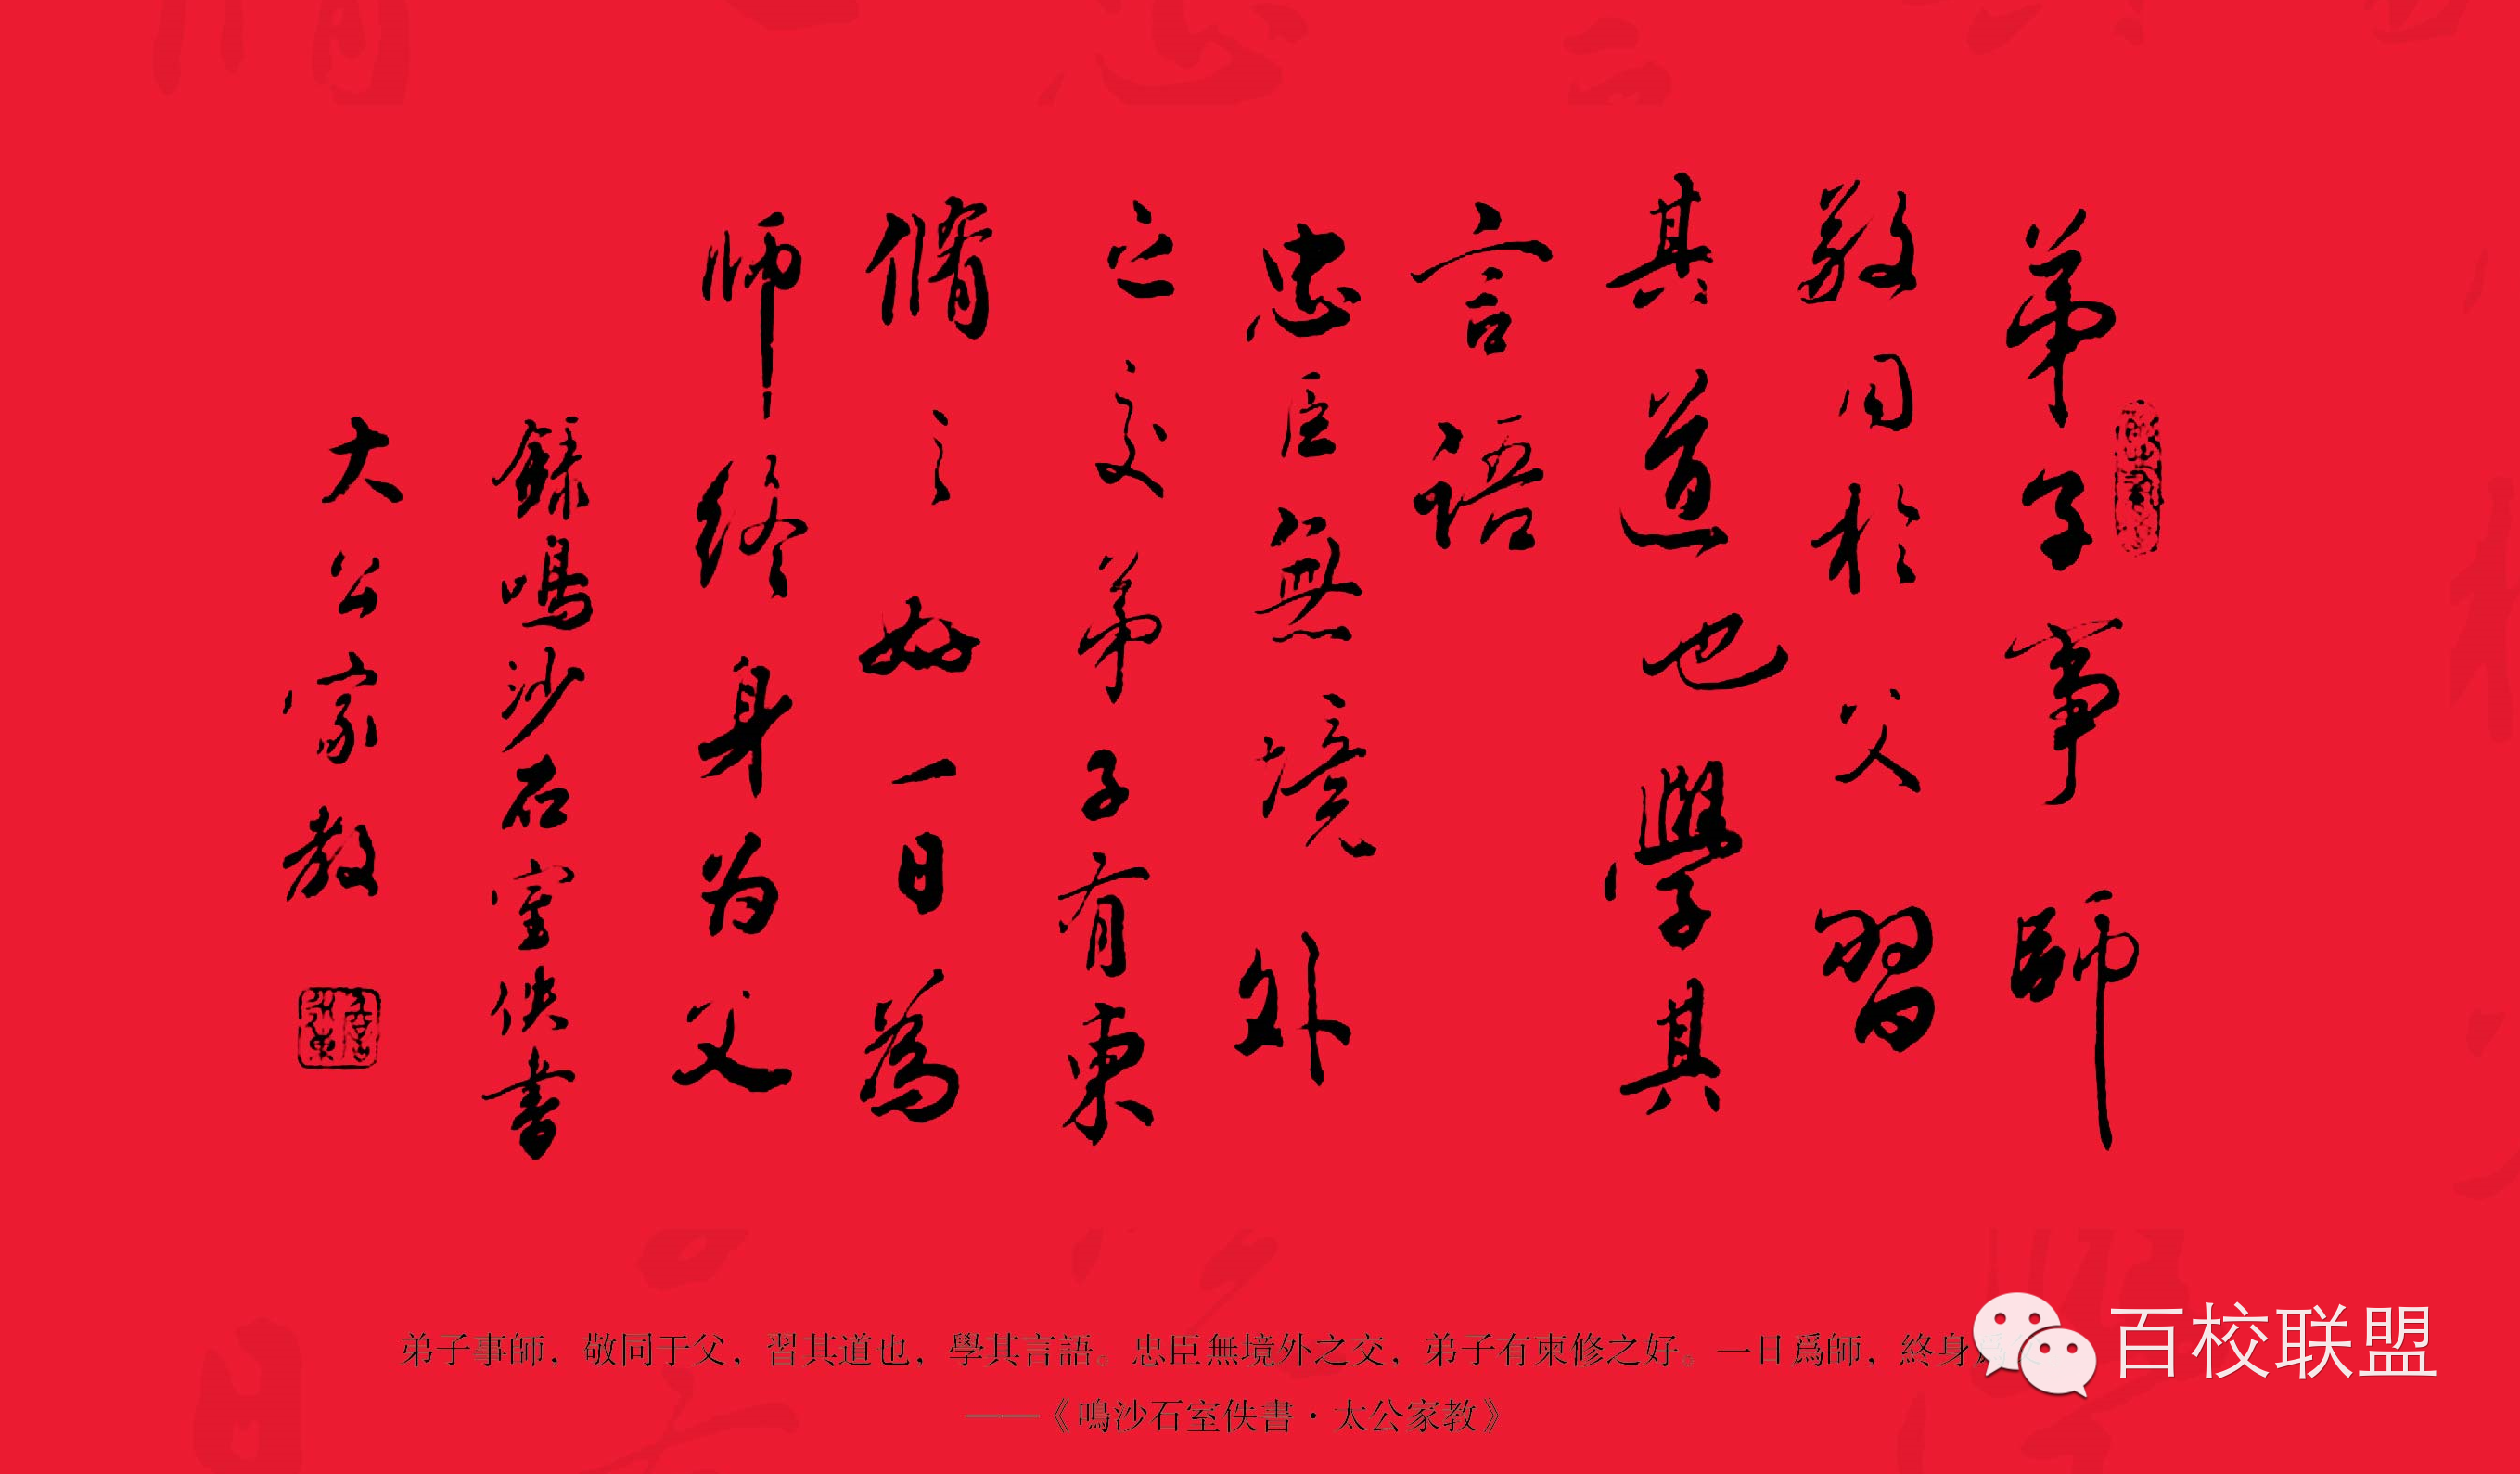 弟子事師
敬同於父習
其道也學其
言語
忠臣無境外
之交弟子有東
脩之好一日為
师终身为父
錄鳴沙石室佚书
大公家教
弟子事師，敬同于父，習其道也，學其言語。忠臣無境外之交，弟子有東修之好。一日爲師，終身爲
——《鳴沙石室佚書·太公家教》
百校联盟